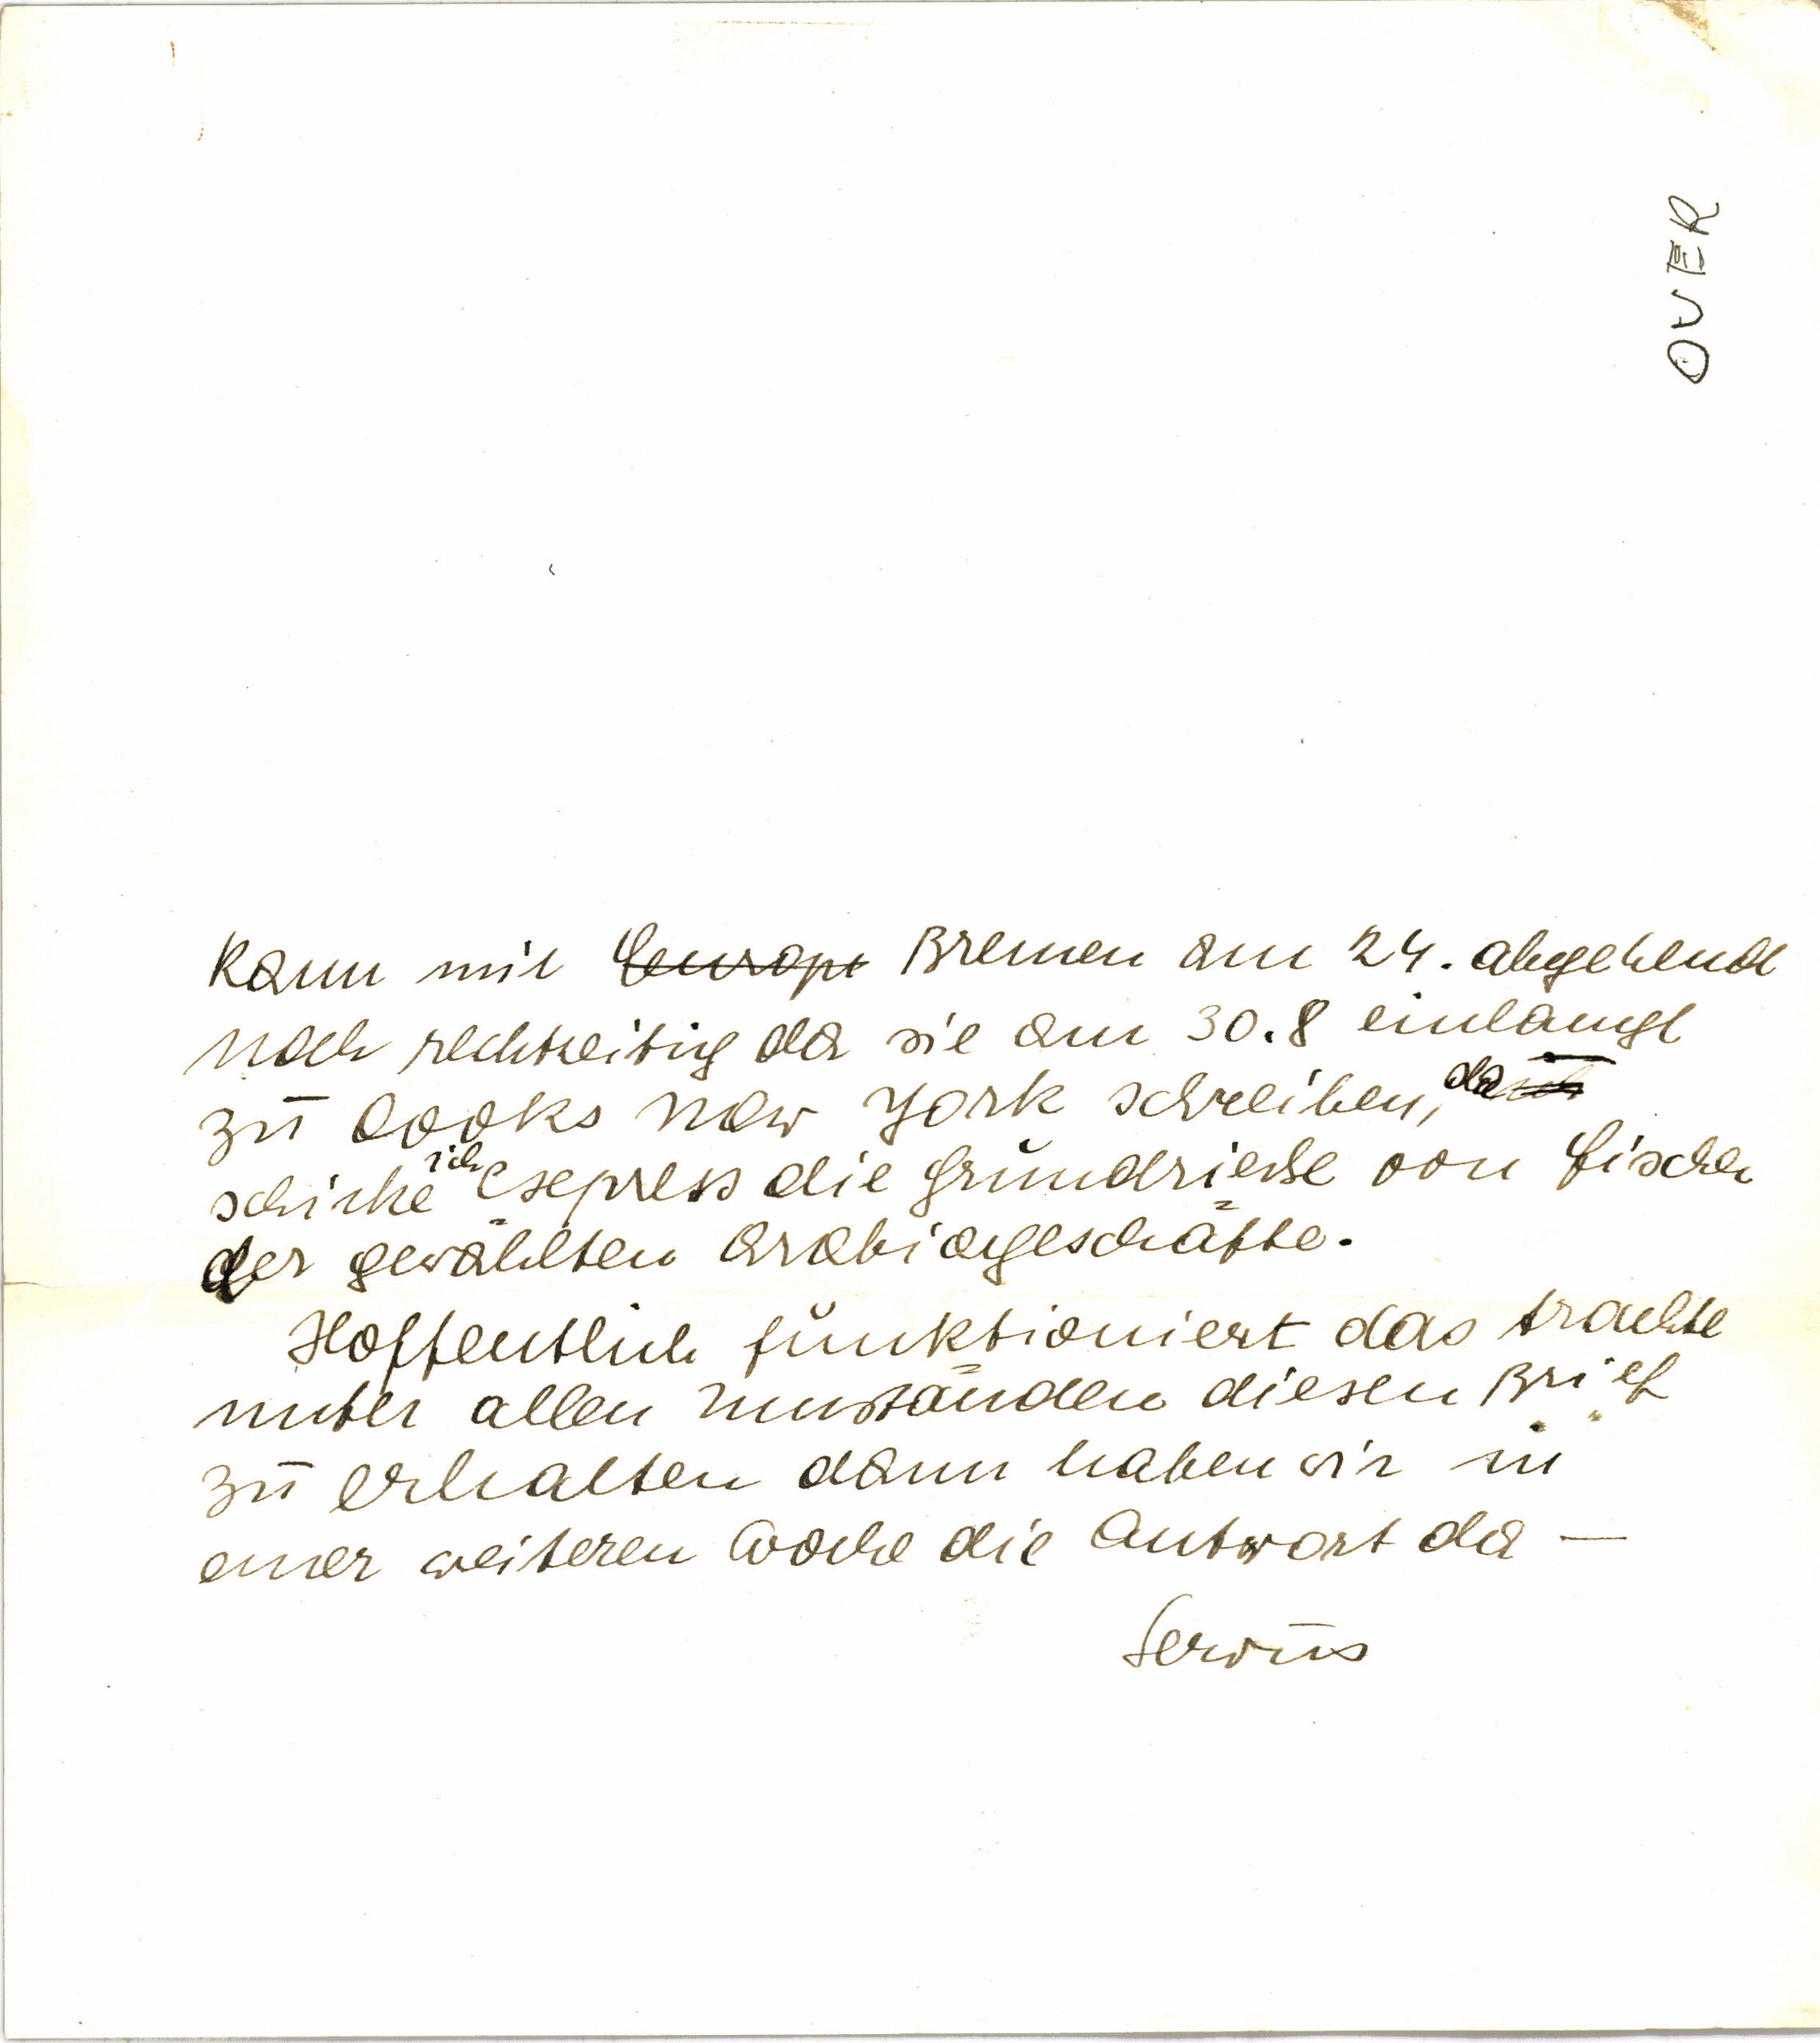 OVER
Kann mit Europe Bremen am 24. abgehend
noch rechtzeitig da sie am 30.8 einlangt
zu Cooks New York schreiben, da ich
schicke ich Express die Grundrieße von Fischer
der gewählten Arabiageschäfte.
Hoffentlich funktioniert das trachte
unter allen Umständen diesen Brief
zu erhalten dann haben wir in
einer weiteren Woche die Antwort da —
Servus